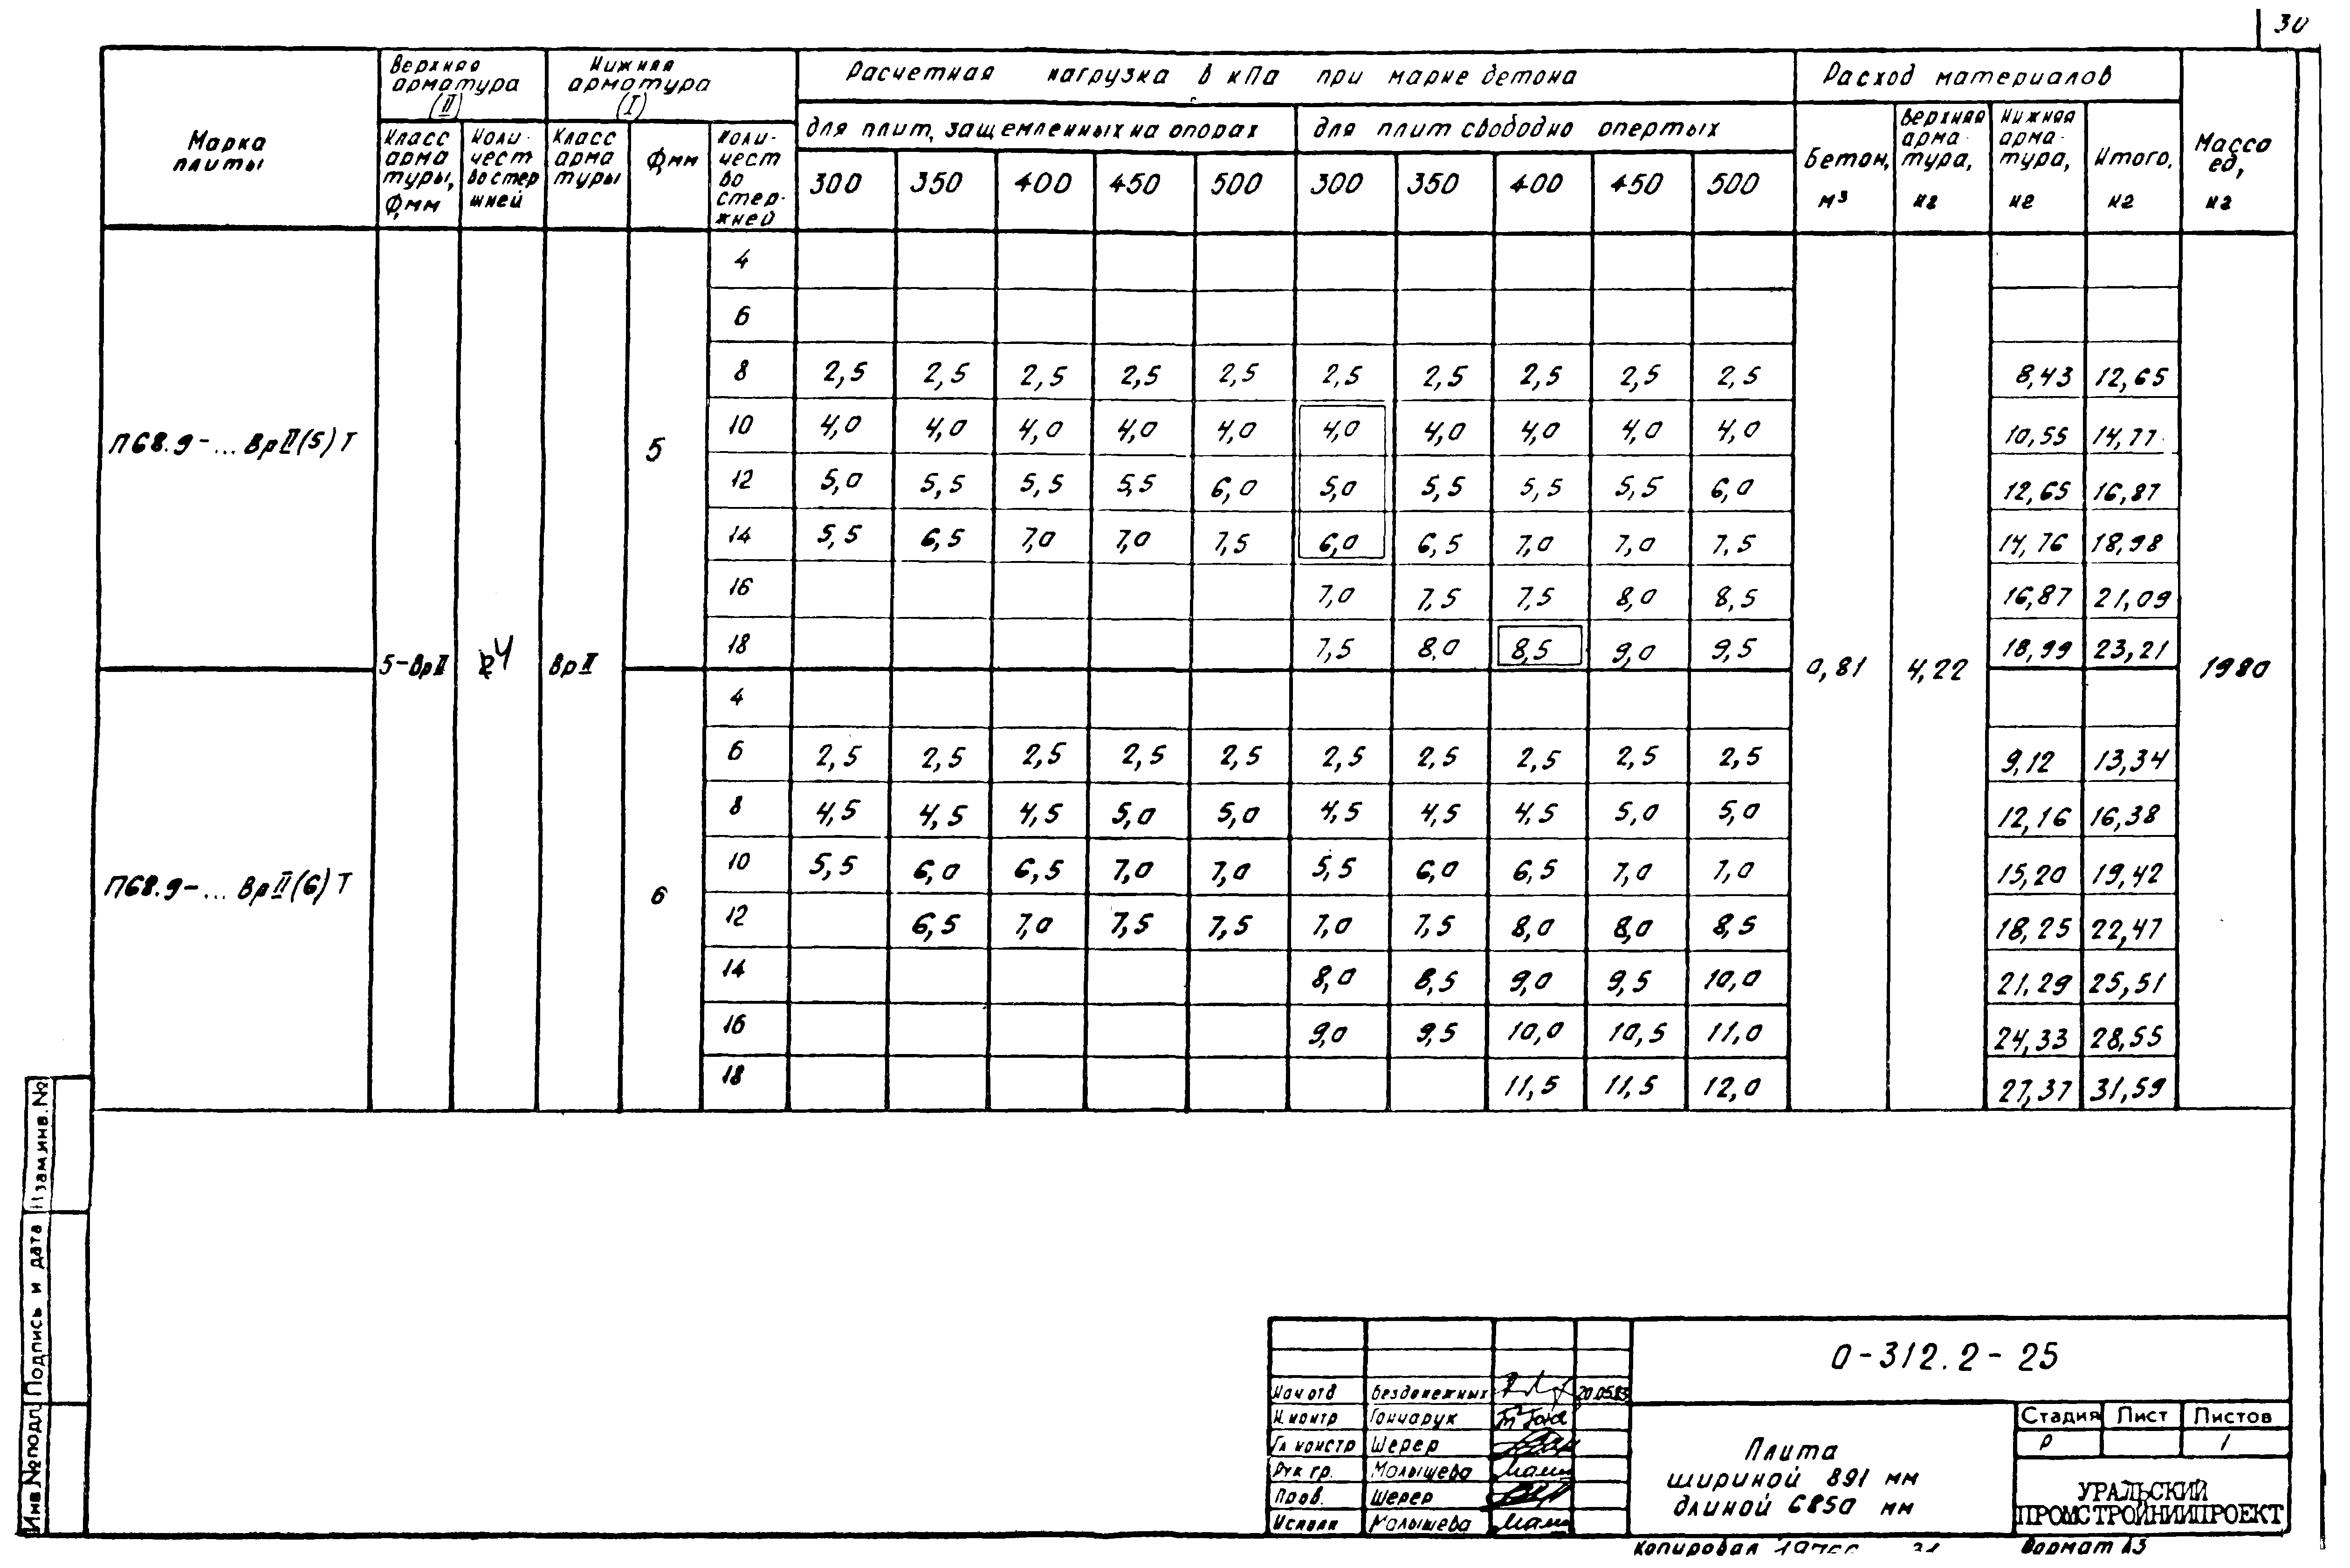 30
Марка плиты
Верхняя арматура (II)
Нижняя арматура (I)
Расчетная нагрузка в кПа при марке бетона
Расход материалов
Масса ед, кг
Класс арма туры, Ф,мм
Коли- чест во стер жней
Класс арма туры
Ф,мм
Коли- чест во стер- жней
для плит, защемленных на опорах
для плит свободно опертых
Бетон, м³
Верхняя арма- тура, кг
Нижняя арма- тура, кг
Итого, кг
300 350 400 450 500 300 350 400 450 500
П68.9-...ВрII(5)Т
5-ВрII
4
ВрII
5
0,81
4,22
1980
4
6
8 2,5 2,5 2,5 2,5 2,5 2,5 2,5 2,5 2,5 2,5 8,43 12,65
10 4,0 4,0 4,0 4,0 4,0 4,0 4,0 4,0 4,0 4,0 10,55 14,77
12 5,0 5,5 5,5 5,5 6,0 5,0 5,5 5,5 5,5 6,0 12,65 16,87
14 5,5 6,5 7,0 7,0 7,5 6,0 6,5 7,0 7,0 7,5 14,76 18,98
16 7,0 7,5 7,5 8,0 8,5 16,87 21,09
18 7,5 8,0 8,5 9,0 9,5 18,99 23,21
П68.9-...ВрII(6)Т
6
4
6 2,5 2,5 2,5 2,5 2,5 2,5 2,5 2,5 2,5 2,5 9,12 13,34
8 4,5 4,5 4,5 5,0 5,0 4,5 4,5 4,5 5,0 5,0 12,16 16,38
10 5,5 6,0 6,5 7,0 7,0 5,5 6,0 6,5 7,0 7,0 15,20 19,42
12 6,5 7,0 7,5 7,5 7,0 7,5 8,0 8,0 8,5 18,25 22,47
14 8,0 8,5 9,0 9,5 10,0 21,29 25,51
16 9,0 9,5 10,0 10,5 11,0 24,33 28,55
18 11,5 11,5 12,0 27,37 31,59
Взам.инв.№
Подпись и дата
Инв №подл
0-312.2-25
Нач отд Безденежных
Н.контр Гончарук
Гл констр Шерер
Рук гр. Малышева
Пров. Шерер
Исполн Малышева
Плита
шириной 891 мм
длиной 6850 мм
Стадия Лист Листов
Р 1
УРАЛЬСКИЙ
ПРОМСТРОЙНИИПРОЕКТ
Копировал
Формат А3